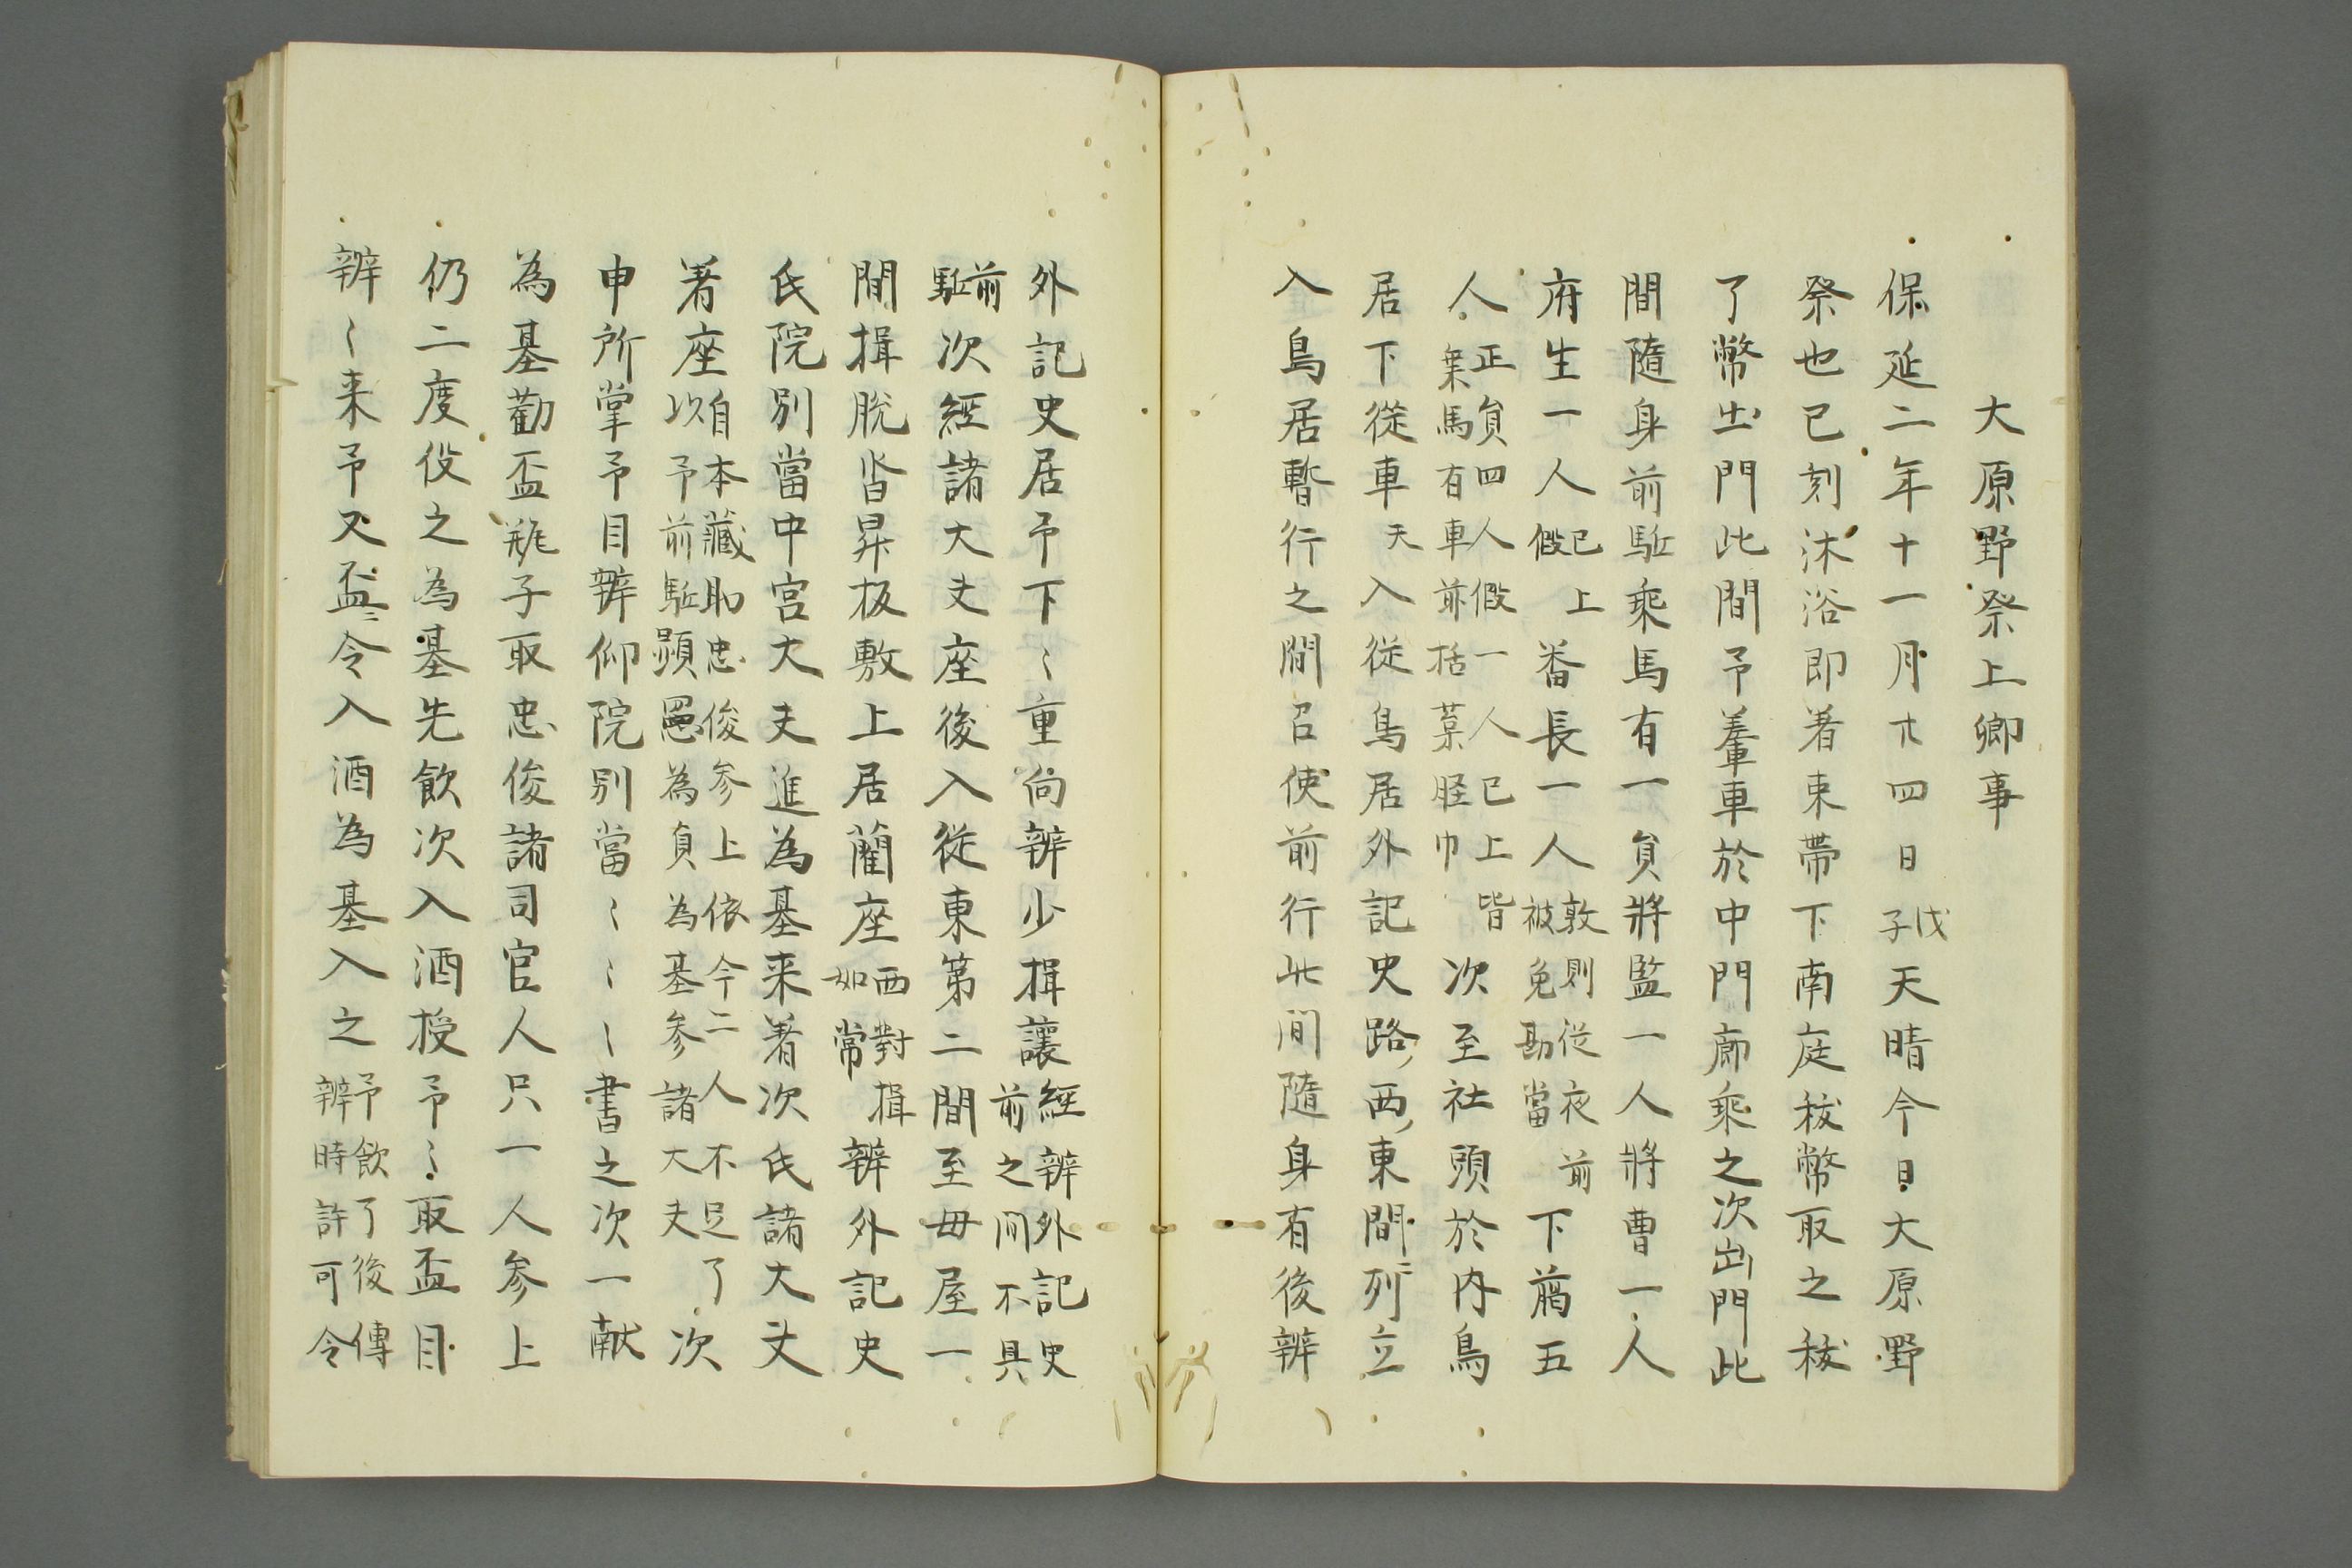 大原野祭上卿事
保延二年十一月廿四日戊子天晴今日大原野
祭也巳刻沐浴即着束帯下南庭祓幣取之祓
了幣出門此間予輦車於中門廊乗之次出門此
間随身前駈乗馬有一員將監一人將曹一人
府生一人已上假番長一人敦則従夜前被免勘當下﨟五
人正員四人假一人已上皆乗馬有車前括葉脛巾次至社頭於内鳥
居下従車天入従鳥居外記史路西東間ニ列立
入鳥居暫行之間召使前行此間隨身有後辨
外記史居予下〻重向辨少揖讓經辨外記史前之間不具
前駈次經諸大夫座後入従東第二間至毋屋一
間揖脱沓昇板敷上居藺座西對揖如常辨外記史
氏院別當中宮大夫進為基来着次氏諸大夫
着座自本藏助忠俊参上依今二人不足了以予前駈顕邑為貟為基参諸大夫次
申所掌予目辨仰院別當〻〻〻書之次一献
為基勸盃瓶子取忠俊諸司官人只一人参上
仍二度役之為基先飲次入酒授予〻取盃目
辨〻来予又盃ニ令入酒為基入之予飲了後傳辨時許可令